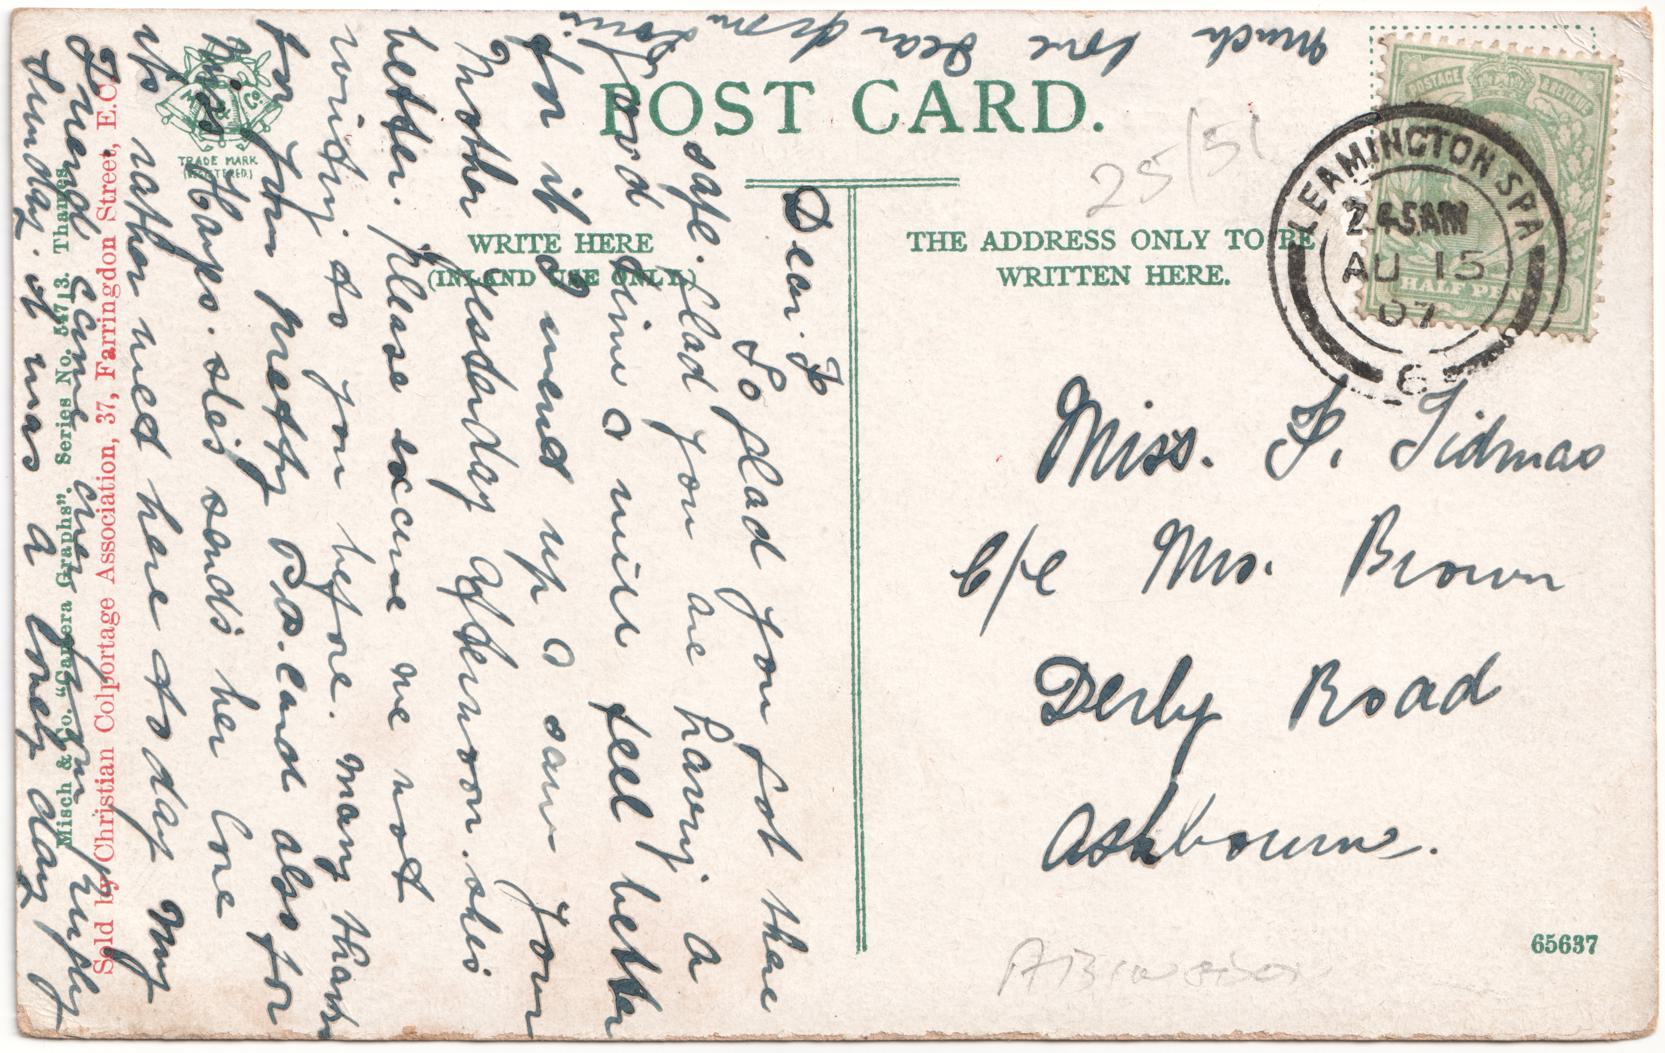 POST CARD.
TRADE MARK
(REGISTERED.)
WRITE HERE
(INLAND USE ONLY.)
THE ADDRESS ONLY TO BE
WRITTEN HERE.
LEAMINGTON SPA
7.45AM
AU 15
07
6
POSTAGE & REVENUE
HALF PENNY
25/51
Miss. F. Tidmas
c/o Mrs. Brown
Derby Road
Ashbourne.
65637
Dear. F
So glad you got there
safe. glad you are having a
good time I will feel better
for it I mend up I saw your
Mother yesterday afternoon. shes
better. Please excuse me not
writing to you before. many thanks
for your pretty P.P. Card also for
his. Hayes. she's sends her love
its rather wet here to day My
Friend came over from
Sunday. it was a lovely day
Much love Dear from
Misch & Co. "Camera Graphs". Series No. 347/13. Thames.
Sold by Christian Colportage Association, 37, Farringdon Street, E.C.